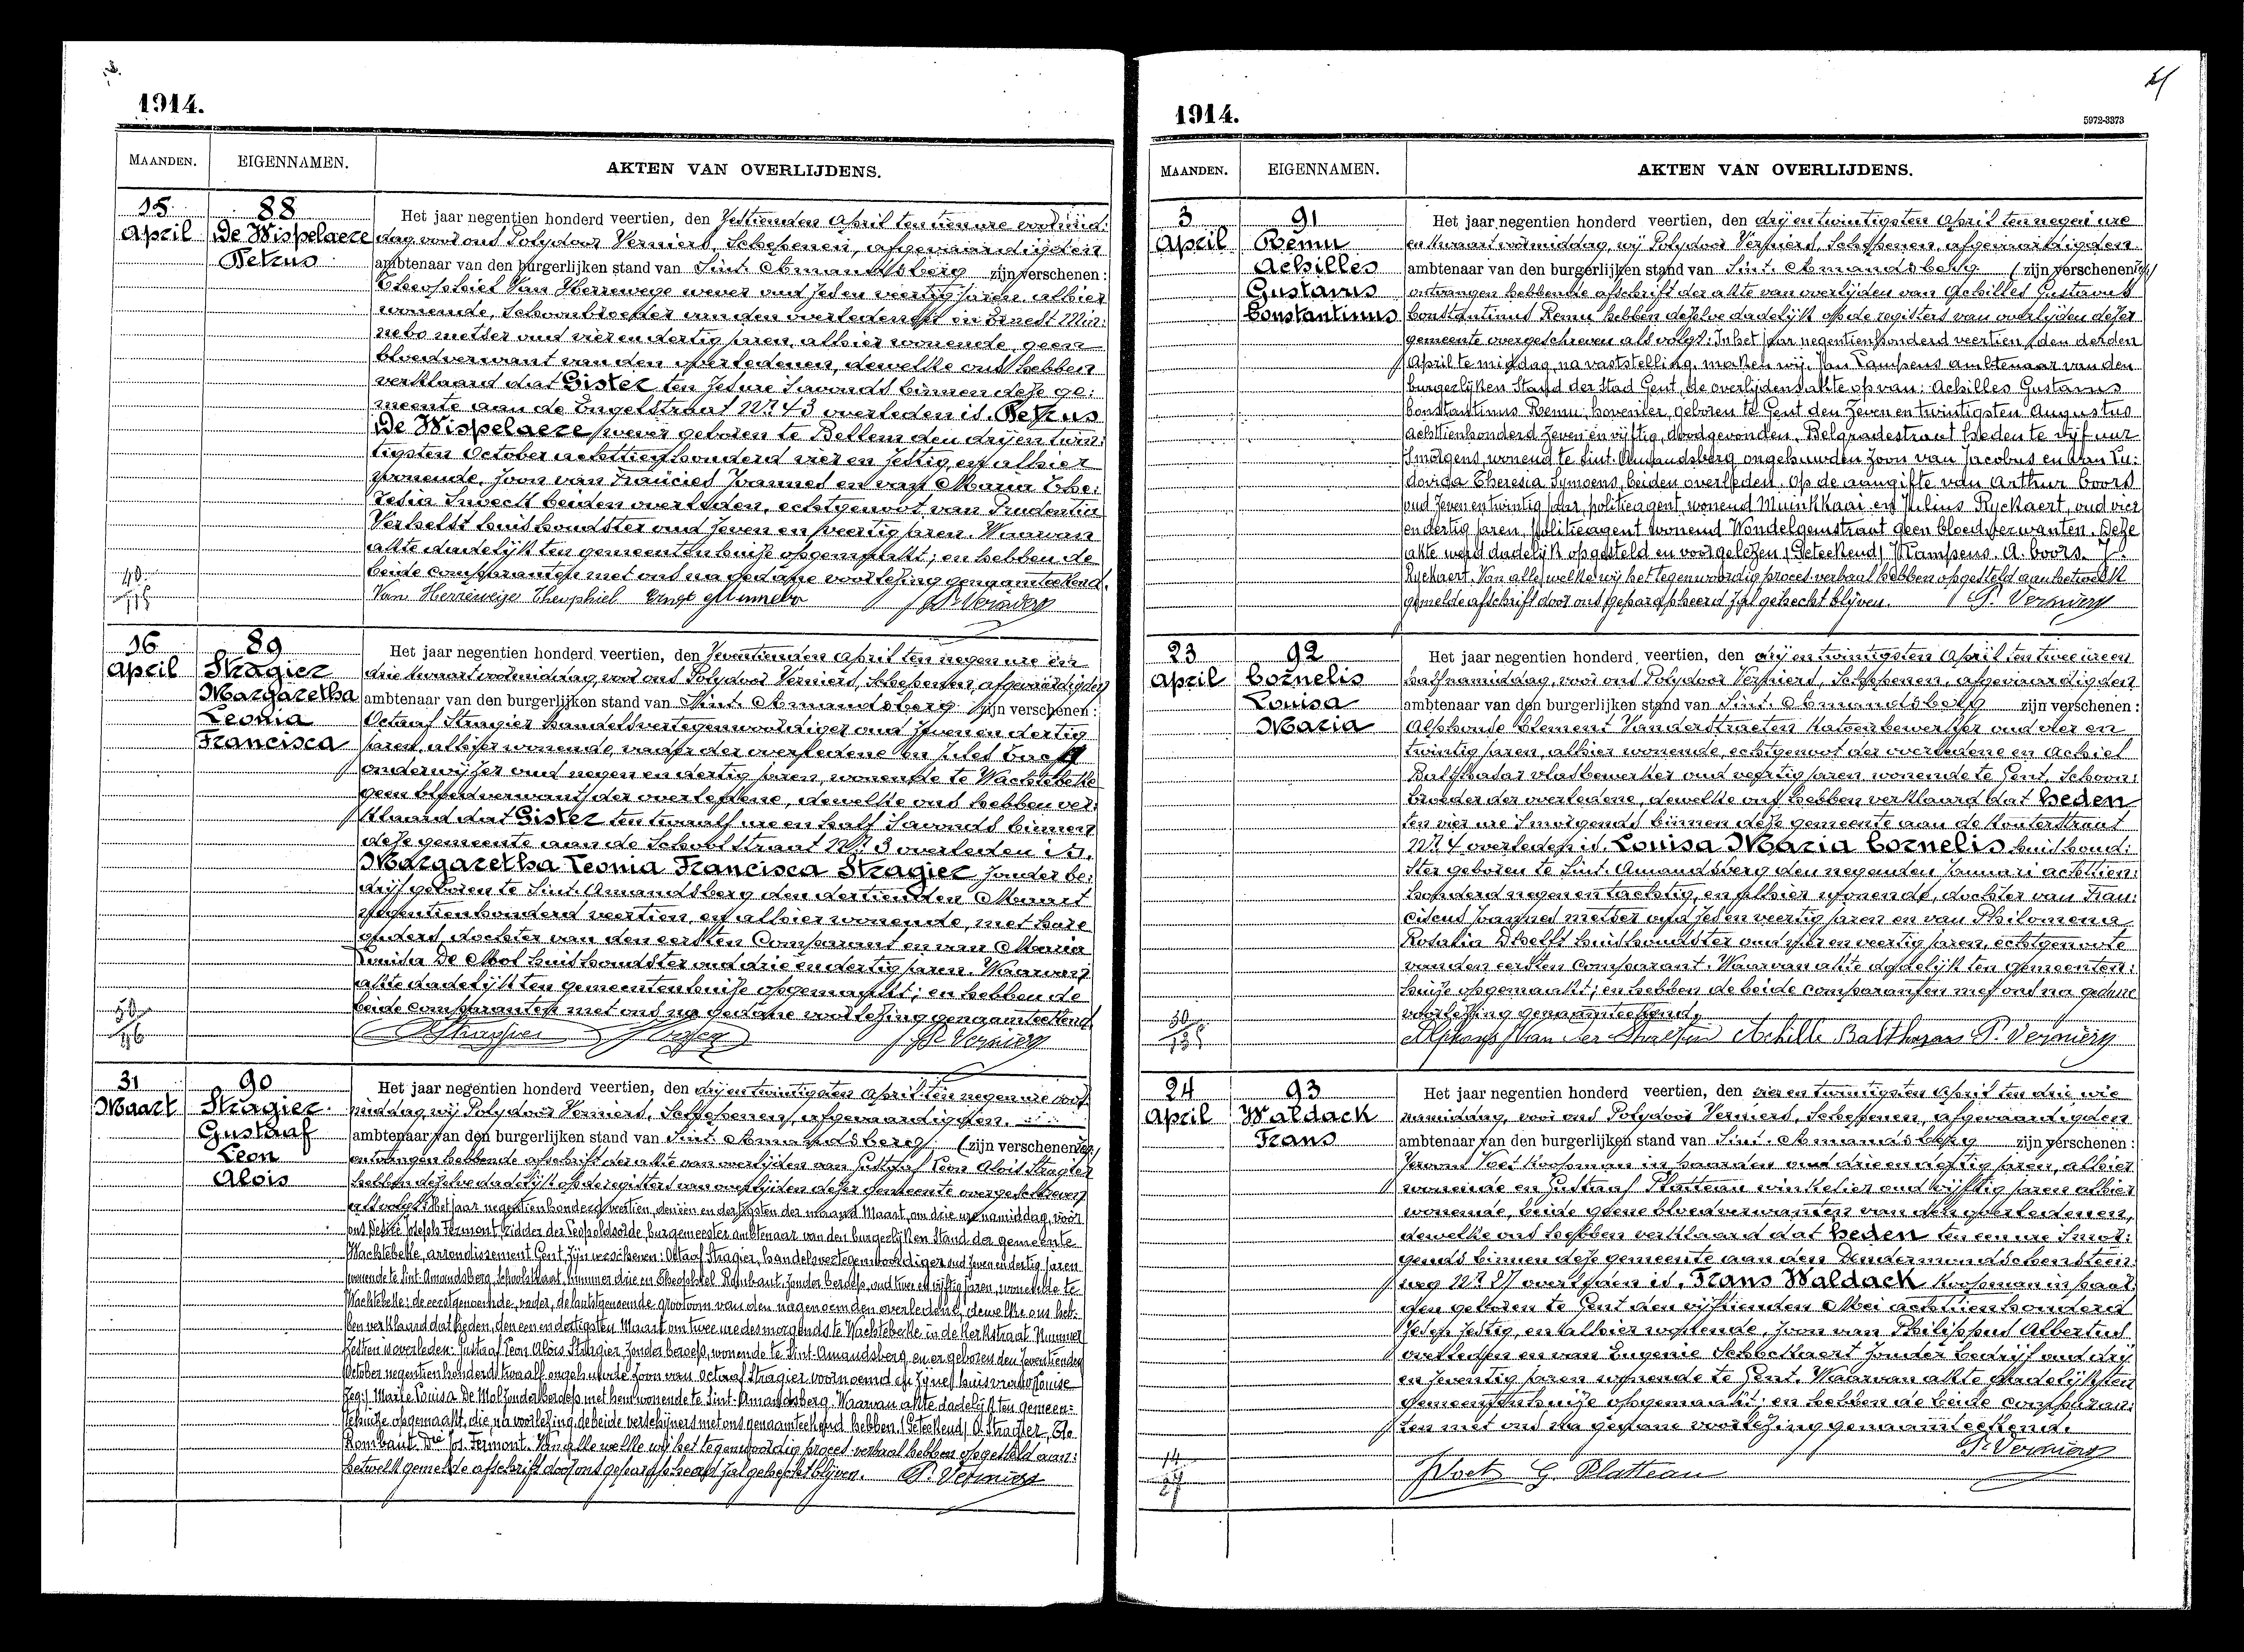 1914.
MAANDEN. EIGENNAMEN. AKTEN VAN OVERLIJDENS.
15 April
88
De Wispelaere
Petrus
Het jaar negentien honderd veertien, den Zestienden April ten tien ure voormid:
dag voor ons Polydoor Verniers, Schepenen, afgevaardigden
ambtenaar van den burgerlijken stand van Sint-Amandsberg zijn verschenen:
Theophiel Van Herrewege wever oud zes en veertig jaren, alhier
wonende, Schoonbroeder van den overledene en Ernest Min:
nebo metser oud vier en dertig jaren, alhier wonende, geen
bloedverwant van den overledenen, dewelke ons hebben
verklaard dat Gister ten zes ure s'avonds binnen deze ge:
meente aan de Engelstraat Nr. 43 overleden is. Petrus
De Wispelaere wever geboren te Bellem den drij en twin:
tigsten October achttien honderd vier en zestig, en alhier
wonende, zoon van Francies Joannes en van Maria The:
resia Snoeck beiden overleden, echtgenoot van Prudentia
Verhelst huishoudster oud zeven en veertig jaren. Waarvan
akte dadelijk ten gemeentenhuize opgemaakt; en hebben de
beide comparanten met ons na gedane voorlezing genaamteekend.
Van Herrewege Theophiel Ernest Minnebo P. Verniers
16 April
89
Stragier
Margaretha
Leonia
Francisca
Het jaar negentien honderd veertien, den Zeventienden April ten negen ure en
drie kwaart voormiddag, voor ons Polydoor Verniers, Schepenen, afgevaardigden
ambtenaar van den burgerlijken stand van Sint-Amandsberg zijn verschenen:
Octaaf Stragier handelsvertegenwoordiger oud zeven en dertig
jaren, alhier wonende, vader der overledene en Jules
onderwijzer oud negen en dertig jaren, wonende te Wachtebeke
geen bloedverwant der overledene, dewelke ons hebben ver:
klaard dat Gister ten twaalf ure en half s'avonds binnen
deze gemeente aan de Schoolstraat Nr. 3 overleden is.
Margaretha Leonia Francisca Stragier zonder be:
drijf geboren te Sint-Amandsberg den dertienden Maart
negentienhonderd veertien, en alhier wonende, met hare
ouders dochter van den eersten Comparant en van Maria
Louisa De Mol huishoudster oud drie en dertig jaren. Waarvan
akte dadelijk ten gemeentenhuize opgemaakt; en hebben de
beide comparanten met ons na gedane voorlezing genaamteekend.
O Stragier P. Verniers
31 Maart
90
Stragier
Gustaaf
Leon
Alois
Het jaar negentien honderd veertien, den drij en twintigsten April ten negen ure voor
middag wij Polydoor Verniers, Schepenen, afgevaardigden
ambtenaar van den burgerlijken stand van Sint-Amandsberg (zijn verschenen)
ontvangen hebbende afschrift der akte van overlijden van Gustaaf Leon Alois Stragier
hebben dezelve dadelijk op de registers van overlijden dezer gemeente overgeschreven
als volgt: Het jaar negentien honderd veertien, den een en dertigsten der maand Maart, om drie ure namiddag, voor
ons Desiré Joseph Fermont, ridder der Leopoldsorde, burgemeester ambtenaar van den burgerlijken Stand der gemeente
Wachtebeke, arrondissement Gent, zijn verschenen: Octaaf Stragier, handelsvertegenwoordiger oud zeven en dertig jaren
wonende te Sint-Amandsberg, Schoolstraat, nummer drie en Theophiel Rombaut zonder beroep, oud twee en vijftig jaren, wonende te
Wachtebeke; de eerstgenoemde, vader, de laatstgenoemde grootoom van den nagenoemden overledene, dewelke ons heb:
ben verklaard dat heden, den een en dertigsten Maart om twee ure des morgends te Wachtebeke in de Kerkstraat Nummer
Zestien is overleden: Gustaaf Leon Alois Stragier zonder beroep, wonende te Sint-Amandsberg, en er geboren den Zeventienden
October negentien honderd twaalf ongehuwde zoon van Octaaf Stragier voornoemd en zijne huisvrouw Louise
(zeg:) Marie Louisa De Mol zonder beroep met hem wonende te Sint-Amandsberg. Waarvan akte dadelijk ten gemeen:
tehuize opgemaakt, die, na voorlezing, de beide verschijners met ons genaamteekend hebben. (Geteekend) O. Stragier, The
Rombaut. Dre Jos. Fermont. Van alle welke wij het tegenwoordig proces-verbaal hebben opgesteld aan:
hetwelk gemelde afschrift door ons geparapheerd zal gehecht blijven. P. Verniers
1914.
5972-3373
MAANDEN. EIGENNAMEN. AKTEN VAN OVERLIJDENS.
3 April
91
Remu
Achilles
Gustavus
Constantinus
Het jaar negentien honderd veertien, den drij en twintigsten April ten negen ure
en kwaart voormiddag, wij Polydoor Verniers, Schepenen, afgevaardigden
ambtenaar van den burgerlijken stand van Sint-Amandsberg (zijn verschenen)
ontvangen hebbende afschrift der akte van overlijden van Achilles Gustavus
Constantinus Remu hebben dezelve dadelijk op de registers van overlijden dezer
gemeente overgeschreven als volgt: In het jaar negentienhonderd veertien, den derden
April te middag, na vaststelling, maken wij, Jan Lampens ambtenaar van den
burgerlijken Stand der Stad Gent, de overlijdensakte op van: Achilles Gustavus
Constantinus Remu, hovenier, geboren te Gent den Zeven en twintigsten Augustus
achttienhonderd zeven en vijftig, doodgevonden, Belgradestraat heden te vijf uur
s'morgens, wonend te Sint-Amandsberg ongehuwden zoon van Jacobus en van Lu:
dovica Theresia Symoens, beiden overleden. Op de aangifte van Arthur Coors
oud zeven en twintig jaar, politieagent, wonend Muinkkaai en Julius Ryckaert, oud vier
en dertig jaren, politieagent wonend Wondelgemstraat geen bloedverwanten. Deze
akte werd dadelijk opgesteld en voorgelezen. (Geteekend) Lampens. A. Coors. J.
Ryckaert. Van alle welke wij het tegenwoordig proces verbaal hebben opgesteld aan hetwelk
gemelde afschrift door ons geparapheerd zal gehecht blijven. P. Verniers
23 April
92
Cornelis
Louisa
Maria
Het jaar negentien honderd veertien, den drij en twintigsten April ten twee ure en
half namiddag, voor ons Polydoor Verniers, Schepenen, afgevaardigden
ambtenaar van den burgerlijken stand van Sint-Amandsberg zijn verschenen:
Alphonse Clement Vanderstraeten Katoenbewerker oud vier en
twintig jaren, alhier wonende, echtgenoot der overledene en Achiel
Balthazar vlasbewerker oud veertig jaren wonende te Gent, Schoon:
broeder der overledene, dewelke ons hebben verklaard dat heden
ten vier ure s'morgends binnen deze gemeente aan de Kouterstraat
Nr. 4 overleden is. Louisa Maria Cornelis huishoud:
ster geboren te Sint-Amandsberg den negenden Januari achttien:
honderd negen en tachtig, en alhier wonende, dochter van Fran:
ciscus Joannes metser oud zes en veertig jaren en van Philomena
Rosalia Dhelft huishoudster oud vier en veertig jaren, echtgenoote
van den eersten comparant. Waarvan akte dadelijk ten gemeenten:
huize opgemaakt; en hebben de beide comparanten met ons na gedane
voorlezing genaamteekend.
Alphons Van der Straeten Achille Balthazar P. Verniers
24 April
93
Waldack
Frans
Het jaar negentien honderd veertien, den vier en twintigsten April ten drie ure
namiddag, voor ons Polydoor Verniers, Schepenen, afgevaardigden
ambtenaar van den burgerlijken stand van Sint-Amandsberg zijn verschenen:
Koopman in paarden oud drie en dertig jaren, alhier
wonende en Gustaaf Platteau winkelier oud vijftig jaren alhier
wonende, beide geene bloedverwanten van den overledenen,
dewelke ons hebben verklaard dat heden ten een ure s'mor:
gends binnen deze gemeente aan den Dendermondschensteen:
weg Nr. 27 overleden is. Frans Waldack koopman in paar:
den geboren te Gent den vijftienden Mei achttien honderd
zes en zestig, en alhier wonende, zoon van Philippus Albertus
overleden en van Eugenie Schockaert zonder bedrijf oud drij
en zeventig jaren wonende te Gent. Waarvan akte dadelijk ten
gemeentenhuize opgemaakt; en hebben de beide comparan:
ten met ons na gedane voorlezing genaamteekend.
P. Verniers
G. Platteau